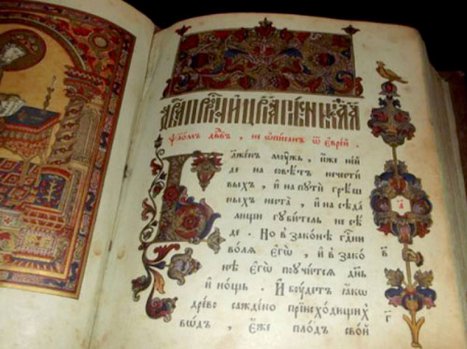 Ѱало́мъ дв҃дъ, не ѡ҆пи́санъ ѿ є҆вре́й
Блаже́нъ мꙋ́жъ, и҆́же не и҆́
де на совѣ́тъ нечести́
выхъ, и҆ на пꙋтѝ грѣ́ш
ныхъ не ста̀, и҆ на сѣда́
лищи гꙋби́тель не сѣ́
де. Но въ зако́нѣ гдⷭ҇ни
во́лѧ є҆гѡ̀, и҆ въ зако́
нѣ є҆гѡ̀ поꙋчи́тсѧ де́нь
и҆ но́щь. И҆ бꙋ́детъ ꙗ҆́кѡ
дре́во сажде́но при и҆схо́дищихъ
во́дъ, є҆́же пло́дъ сво́й
а҃
в҃
г҃